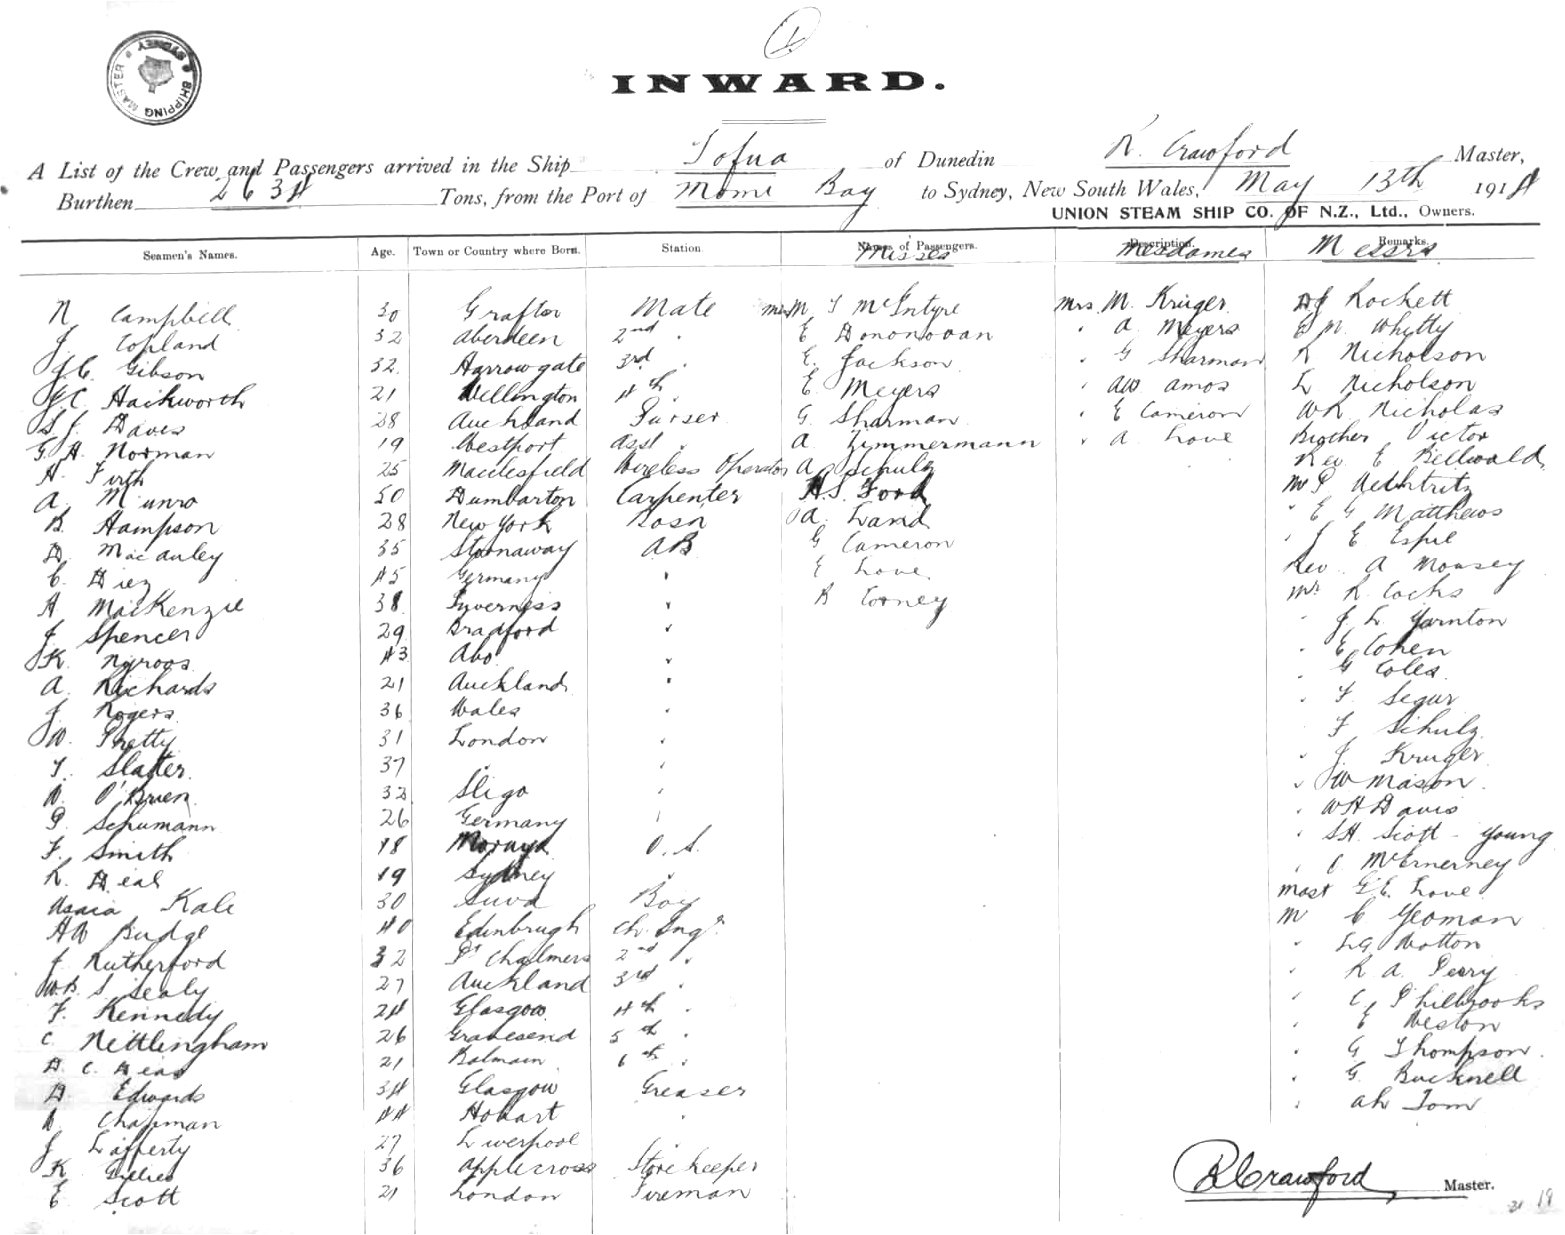 1
SHIPPING MASTER SYDNEY
INWARD.
A List of the Crew and Passengers arrived in the Ship Tofua of Dunedin R. Crawford Master,
Burthen 2634 Tons, from the Port of Momi Bay to Sydney, New South Wales, May 13th 1914
UNION STEAM SHIP CO. OF N.Z., Ltd., Owners.
Seamen's Names. Age. Town or Country where Born. Station Names of Passengers. Misses Description. Mesdames Remarks. Messrs
N Campbell 30 Grafton Mate M I McIntyre Mrs. M. Kruger Rockett
J. Copland 32 Aberdeen 2nd " E Dononovan " A Meyers E M Whitty
J.C. Gibson 32 Harrowgate 3rd " E. Jackson " G Sharman R Nicholson
G.C. Hackworth 21 Wellington 4th " E Meyers " AW Amos L Nicholson
S J. Daves 28 Auckland Purser G. Sharman " E Cameron WR Nicholas
G. H. Norman 19 Westport Asst " A Zimmermann " A. Love Brother Victor
H. Firth 25 Macclesfield Wireless Operator A Schulz Rev E Bellwald
A. Munro 50 Dumbarton Carpenter H.S. Ford Mr P Aechtritz
B. Hampson 28 New York Bosn A. Laird " E G Matthews
D. Macauley 35 Stornaway AB G Cameron " J E Espie
C. Diez 45 Germany " E Love Rev. A Mousey
A MacKenzie 38 Inverness " R Torney Mr R Cocks
J Spencer 29 Bradford " " J L Yarnton
K. Nyroos 43 Abo " " E Cohen
A. Richards 21 Auckland " " G Coles
J Rogers 36 Wales " " F Segar
W. Pretty 31 London " F Schulz
T. Slater 37 " " " J Kruger
O'Brien 32 Sligo " " W Mason
P. Schumann 26 Germany " " WH Davis
F. Smith 18 Moruya O.S. " SH. Scott - Young
R. Deal 19 Sydney " " McEnerney
Asaia Kali 30 Suva Boy Mast G.E. Love
AW Budge 40 Edinbrugh Ch. Engr M C Yeoman
J Rutherford 32 Pt Chalmers 2nd " " LG Wotton
W.B. S. Sealy 27 Auckland 3rd " " R A. Perry
F. Kennedy 24 Glasgow 4th " " C Philbrooks
C Nettlingham 26 Gravesend 5th " " E Weston
D. C. Dias 21 Balmain 6th " " G Thompson
D. Edwards 34 Glasgow Greaser " G. Bucknell
Chapman 44 Hobart " " Ah Tom
J Lafferty 27 Liverpool "
K Gillies 36 Applecross Storekeeper
E Scott 21 London Fireman
R Crawford Master.
31 19